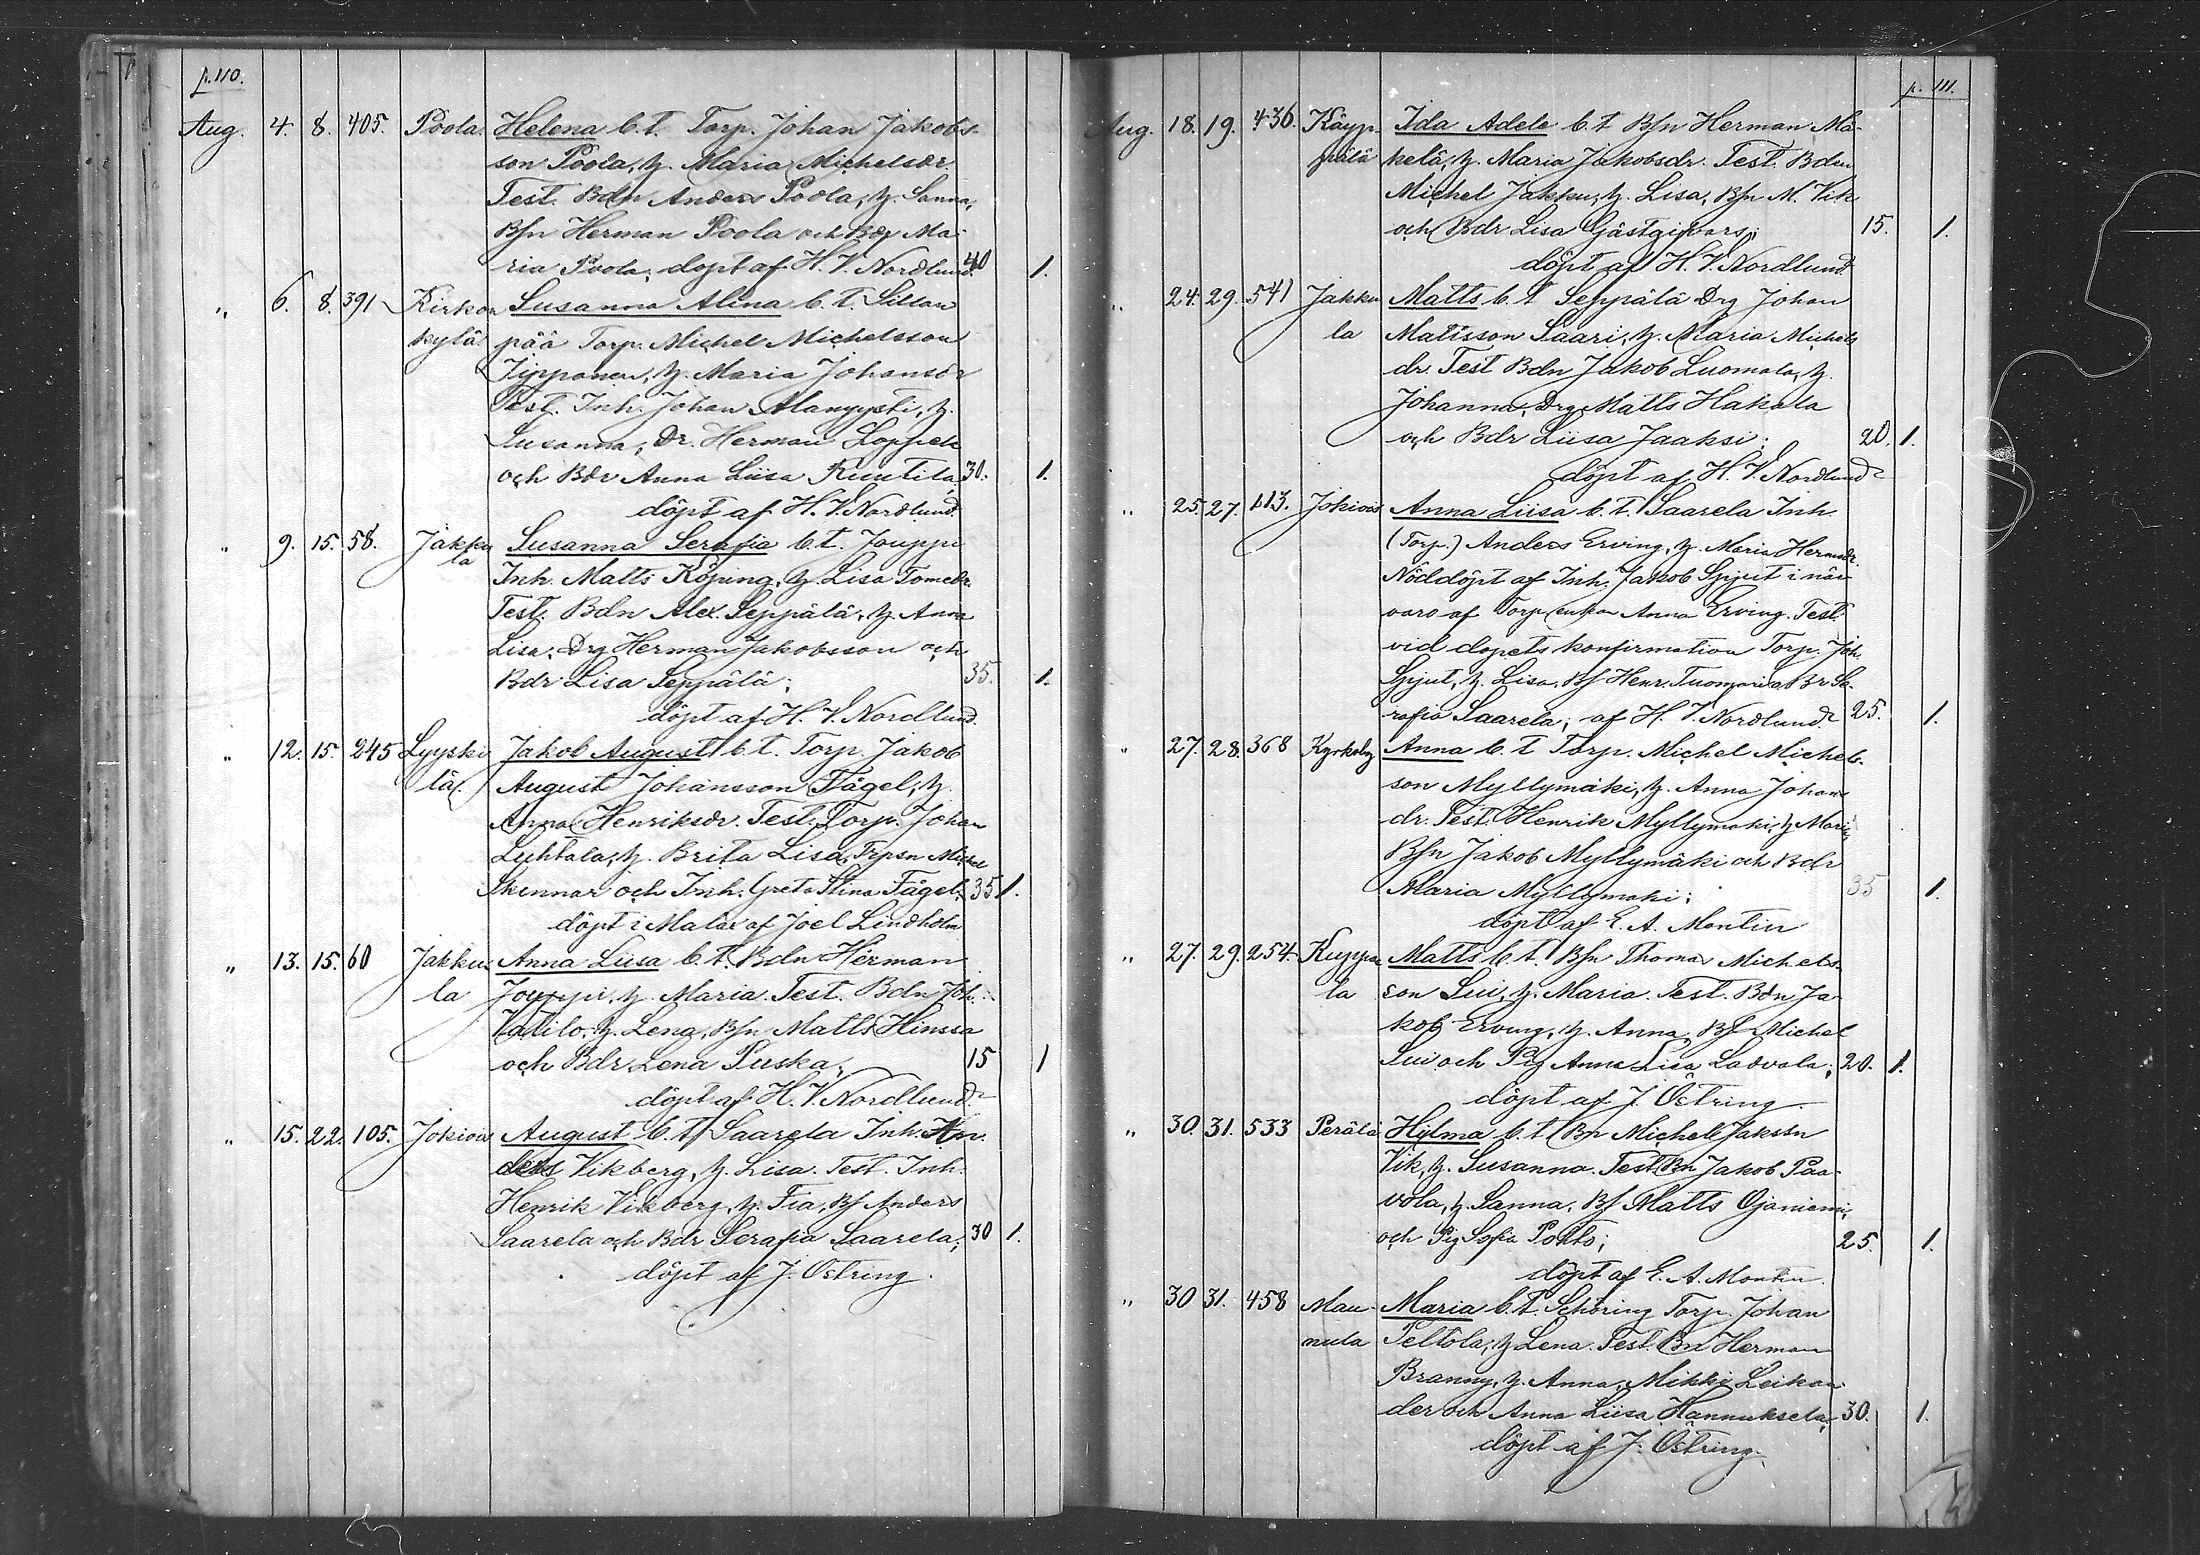 p. 110.
Aug. 4. 8. 405. Poola. Helena b. t. Torp. Johan Jakobs-
son Poola, h. Maria Michelsdr
Test. Bdn Anders Poola, h. Sanna,
Bsn Herman Poola och Bdr Ma-
ria Poola; döpt af H. V. Nordlund. 40 1.
" 6. 8. 391 Kirkon Susanna Alina b. t. Sillan
kylä pää Torp. Michel Michelsson
Jipponen, h. Maria Johansdr
Test. Inh. Johan Alanyysti, h.
Susanna, Dr. Herman
och Bdr Anna Liisa Kuutila; 30. 1.
döpt af H. V. Nordlund.
" 9. 15. 58. Jakku Susanna Serafia b. t. Jouppi
la Inh. Matts Köping, h. Lisa Tomedr.
Test. Bdn Alex. Seppälä, h. Anna
Lisa, Drg Herman Jakobsson och
Bdr Lisa Seppälä; 35. 1.
döpt af H. V. Nordlund.
" 12. 15. 245 Lyyski Jakob August b. t. Torp. Jakob
lä. August Johansson Fågel, h.
Anna Henriksdr. Test. Torp. Johan
Luhtala, h. Brita Lisa, Trpsn Michel
Skinnar och Inh. Greta Stina Fågel; 35 1.
döpt i Malax af Joel Lindholm
" 13. 15. 60 Jakku Anna Liisa b. t. Bdn Herman
la Jouppi, h. Maria. Test. Bdn Joh.
h. Lena, Bsn Matts Hinssa
och Bdr Lena Puska; 15 1
döpt af H. V. Nordlund.
" 15. 22. 105. Jokiois August b. t. Saarela Inh. An-
ders Vikberg, h. Lisa. Test. Inh.
Henrik Vikberg, h. Fia, Bs Anders
Saarela och Bdr Serafia Saarela; 30 1.
döpt af J. Östring.
p. 111.
Aug. 18. 19. 436. Käyp Ida Adele b. t. Bsn Herman Mä-
pälä kelä, h. Maria Jakobsdr. Test. Bdn
Michel Jakku, h. Lisa, Bsn M. Vik
och Bdr Lisa Gästgifvars; 15. 1.
döpt af H. V. Nordlund
" 24. 29. 541 Jakku Matts b. t. Seppälä Drg Johan
la Mattsson Saari, h. Maria Michels
dr. Test Bdn Jakob Luomala, h.
Johanna, Drg Matts Hakala
och Bdr Liisa Jaaksi; 20. 1.
döpt af H. V. Nordlund
" 25. 27. 113. Jokiois Anna Liisa b. t. Saarela Inh.
(Torp.) Anders Erving, h. Maria Hermsdr.
Nöddöpt af Inh. Jakob Spjut i när-
varo af Torp. enkan Anna Erving. Test
vid dopets konfirmation Torp. Joh.
Spjut, h. Lisa, Bs Henr. Bdr Se-
rafia Saarela; af H. V. Nordlund 25. 1.
" 27. 28. 368 Kyrkoby Anna b. t. Torp. Michel Michels-
son Myllymäki, h. Anna Johans
dr. Test. Henrik Myllymäki, h Maria,
Bsn Jakob Myllymäki och Bdr
Maria Myllymäki; 35 1.
döpt af E. A. Montin
" 27. 29. 254. Kuppa Matts b. t. Bsn Thomas Michels-
la son Lui, h. Maria. Test. Bdn Ja-
kob Erving, h. Anna, Bs Michel
Lui och Pig Anna Lisa Ladvala; 20. 1.
döpt af J. Östring
" 30. 31. 533 Perälä Hilma b. t. Bn Michel Jakssn
Vik, h. Susanna. Test Bn Jakob Paa-
vola, h. Sanna, Bs Matts Ojaniemi,
och Pig Sofia Pohto; 25. 1.
döpt af E. A. Montin.
" 30 31. 458 Mau- Maria b. t. Schöring Torp. Johan
nula Peltola, h. Lena. Test. Bn Herman
Branny, h. Anna, Mikki Leikan-
der och Anna Liisa Hannuksela; 30. 1.
döpt af J. Östring.